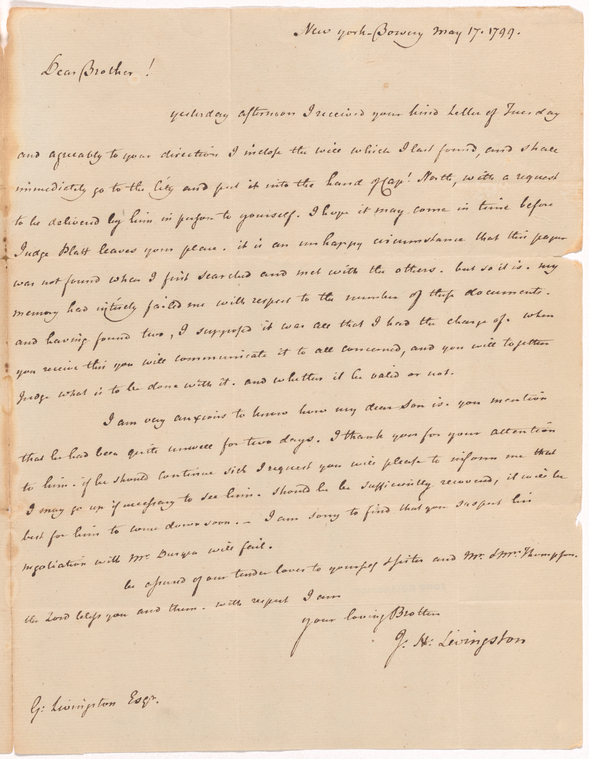 New york-Bowery May 17. 1799.
Dear Brother!
yesterday afternoon I received your kind Letter of Tuesday
and agreably to your direction I inclose the will which I last found, and shall
immediately go to the City and put it into the hand of Cap! North, with a request
to be delivered by him in person to yourself. I hope it may come in time before
Judge Platt leaves your place. it is an unhappy circumstance that this paper
was not found when I first searched and met with the others. but so it is. my
memory had intirely failed me with respect to the number of these documents.
and having found two, I supposed it was all that I had the charge of. when
you receive this you will communicate it to all concerned, and you will together
Judge what is to be done with it. and whether it be valid or not.
I am very anxious to know how my dear son is. you mention
that he had been quite unwell for two days. I thank you for your attention
to him. if he should continue sick I request you will please to inform me that
I may go up if necessary to see him. should he be sufficiently recovered, it will be
best for him to come down soon. - I am sorry to find that you suspect his
negotiation with Mr. Duryea will fail.
be assured of our tender loves to yourself & sister and Mr. & Mrs. Thompson.
the Lord bless you and them. with respect I am
your loving Brother
J. H. Livingston
G: Livingston Esqr.